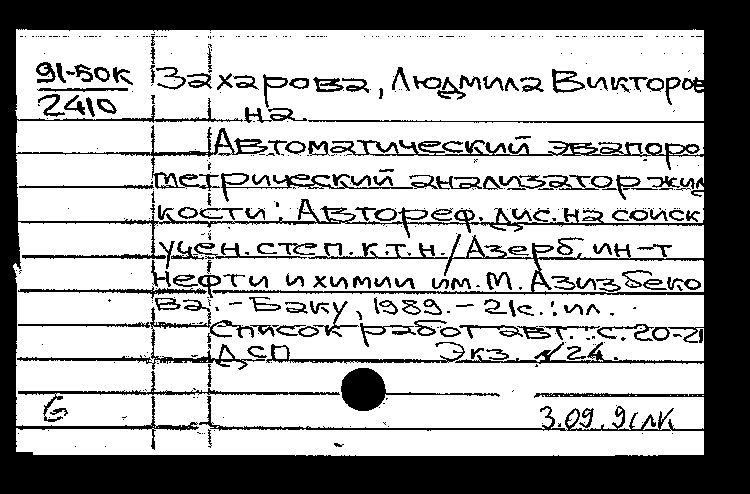 91-50К
2410
Захарова, Людмила Викторов
на.
Автоматический эвапоро
метрический анализатор жид
кости: Автореф. дис. на соиск
учен. степ. к.т.н. / Азерб. ин-т
нефти и химии им. М. Азизбеко
ва. - Баку, 1989. - 21с. : ил.
Список работ авт.: с. 20-21
ДСП Экз. № 24.
6
3.09.91 ЛК